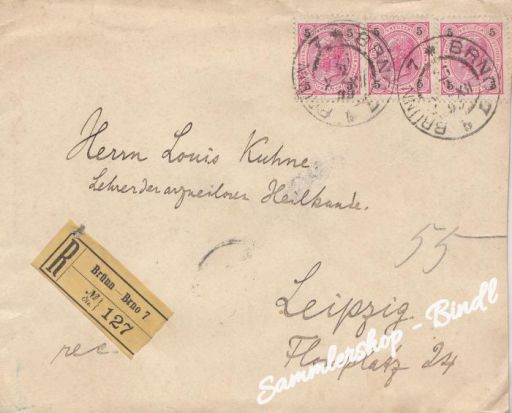 5 5 5 5 5 5
BRÜNN 7 * BRNO 7
BRÜNN 7 * BRNO 7
Herrn Louis Kuhne
Lehrer der arzneilosen Heilkunde.
55
R
Brünn—Brno 7
No
127
rec.
Leipzig
Floßplatz 24
Sammlershop - Bindl